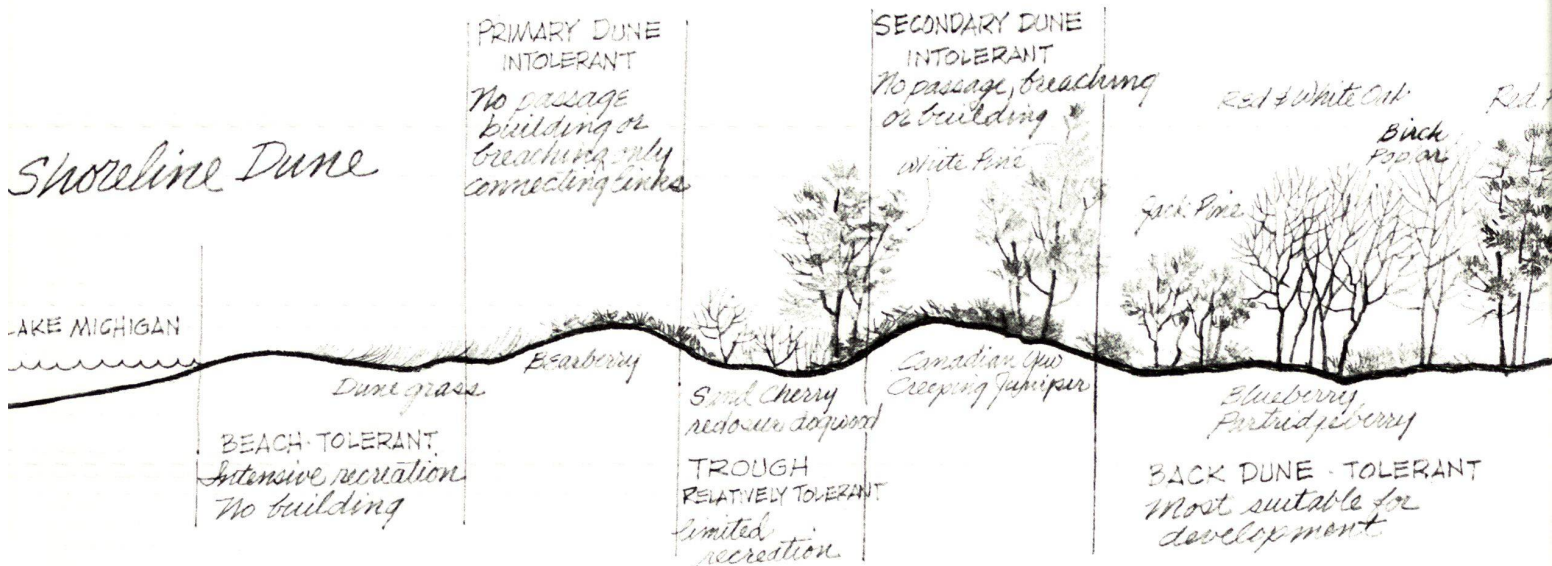 Shoreline Dune
LAKE MICHIGAN
Dune grass
BEACH · TOLERANT
Intensive recreation
No building
PRIMARY DUNE
INTOLERANT
No passage
building or
breaching only
connecting links
Bearberry
Sand Cherry
redosier dogwood
TROUGH
RELATIVELY TOLERANT
limited
recreation
SECONDARY DUNE
INTOLERANT
No passage, breaching
or building
White Pine
Canadian Yew
Creeping Juniper
Jack Pine
Red & White Oak
Birch
Poplar
Red
Blueberry
Partridgeberry
BACK DUNE · TOLERANT
Most suitable for
development